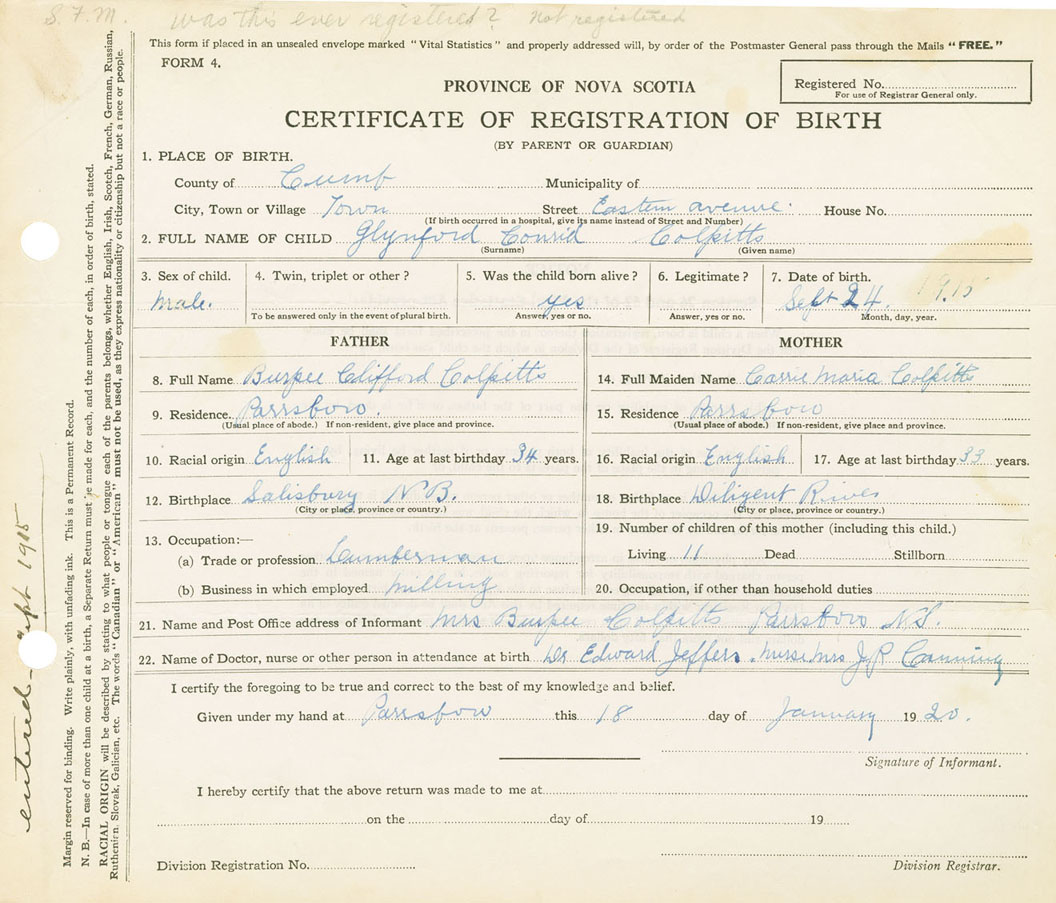 S.F.M. was this ever registered? Not registered
This form if placed in an unsealed envelope marked "Vital Statistics" and properly addressed will, by order of the Postmaster General pass through the Mails "FREE."
FORM 4.
Registered No.
For use of Registrar General only.
PROVINCE OF NOVA SCOTIA
CERTIFICATE OF REGISTRATION OF BIRTH
(BY PARENT OR GUARDIAN)
1. PLACE OF BIRTH.
County of Cumb Municipality of
City, Town or Village Town Street Eastern avenue. House No.
(If birth occurred in a hospital, give its name instead of Street and Number)
2. FULL NAME OF CHILD Glynford Conrid Colpitts
(Surname) (Given name)
3. Sex of child. 4. Twin, triplet or other? 5. Was the child born alive? 6. Legitimate? 7. Date of birth.
Male. yes Sept 24. 1915
To be answered only in the event of plural birth. Answer, yes or no. Answer, yes or no. Month, day, year.
FATHER
8. Full Name Burpee Clifford Colpitts
9. Residence. Parrsboro.
(Usual place of abode.) If non-resident, give place and province.
10. Racial origin English 11. Age at last birthday 34 years.
12. Birthplace Salisbury N B.
(City or place, province or country.)
13. Occupation:—
(a) Trade or profession Lumberman
(b) Business in which employed Milling
MOTHER
14. Full Maiden Name Carrie Maria Colpitts
15. Residence Parrsboro
(Usual place of abode.) If non-resident, give place and province.
16. Racial origin English 17. Age at last birthday 33 years.
18. Birthplace Diligent River
(City or place, province or country.)
19. Number of children of this mother (including this child.)
Living 11 Dead Stillborn
20. Occupation, if other than household duties
21. Name and Post Office address of Informant Mrs Burpee Colpitts Parrsboro N.S.
22. Name of Doctor, nurse or other person in attendance at birth Dr Edward Jeffers. Nurse Mrs J R Canning
I certify the foregoing to be true and correct to the best of my knowledge and belief.
Given under my hand at Parrsboro this 18 day of January 1920.
Signature of Informant.
I hereby certify that the above return was made to me at
on the day of 19
Division Registration No.
Division Registrar.
Margin reserved for binding. Write plainly, with unfading ink. This is a Permanent Record.
N. B.—In case of more than one child at a birth, a Separate Return must be made for each, and the number of each, in order of birth, stated.
RACIAL ORIGIN will be described by stating to what people or tongue each of the parents belongs, whether English, Irish, Scotch, French, German, Russian,
Ruthenian, Slovak, Galician, etc. The words "Canadian" or "American" must not be used, as they express nationality or citizenship but not a race or people.
entered 1915